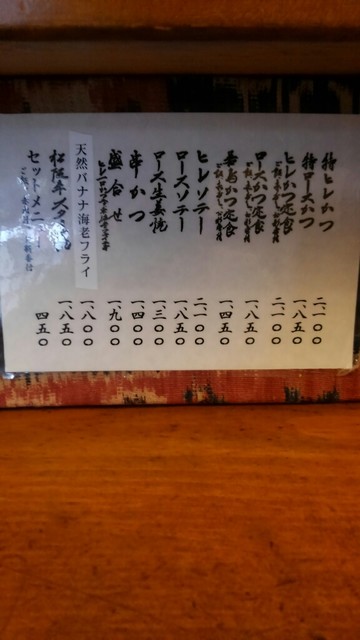 特ヒレかつ 二、一〇〇
特ロースかつ 一、八五〇
ヒレかつ定食 二、一〇〇
ロースかつ定食 一、八五〇
若鳥かつ定食 一、四五〇
ヒレソテー 二、一〇〇
ロースソテー 一、八五〇
ロース生姜焼 一、三〇〇
串かつ 一、四〇〇
盛合せ 一、九〇〇
天然バナナ海老フライ 一、八〇〇
松阪牛 一、八五〇
セットメニュー 四五〇